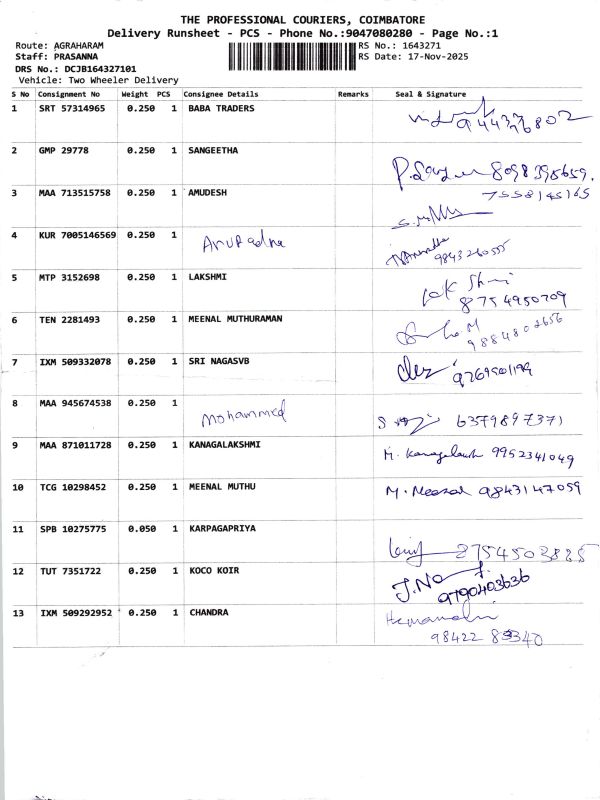 THE PROFESSIONAL COURIERS, COIMBATORE
Delivery Runsheet - PCS - Phone No.:9047080280 - Page No.:1
Route: AGRAHARAM
Staff: PRASANNA
DRS No.: DCJB164327101
Vehicle: Two Wheeler Delivery
RS No.: 1643271
RS Date: 17-Nov-2025
S No Consignment No Weight PCS Consignee Details Remarks Seal & Signature
1 SRT 57314965 0.250 1 BABA TRADERS
2 GMP 29778 0.250 1 SANGEETHA 8098395659.
3 MAA 713515758 0.250 1 AMUDESH 7558145165
4 KUR 7005146569 0.250 1 Arupadna 9843260555
5 MTP 3152698 0.250 1 LAKSHMI 8754950709
6 TEN 2281493 0.250 1 MEENAL MUTHURAMAN
7 IXM 509332078 0.250 1 SRI NAGASVB
8 MAA 945674538 0.250 1 Mohammed 6379897371
9 MAA 871011728 0.250 1 KANAGALAKSHMI M. Kanagalaksh 9952341049
10 TCG 10298452 0.250 1 MEENAL MUTHU M. Meenal 9843147059
11 SPB 10275775 0.050 1 KARPAGAPRIYA
12 TUT 7351722 0.250 1 KOCO KOIR 9790403636
13 IXM 509292952 0.250 1 CHANDRA